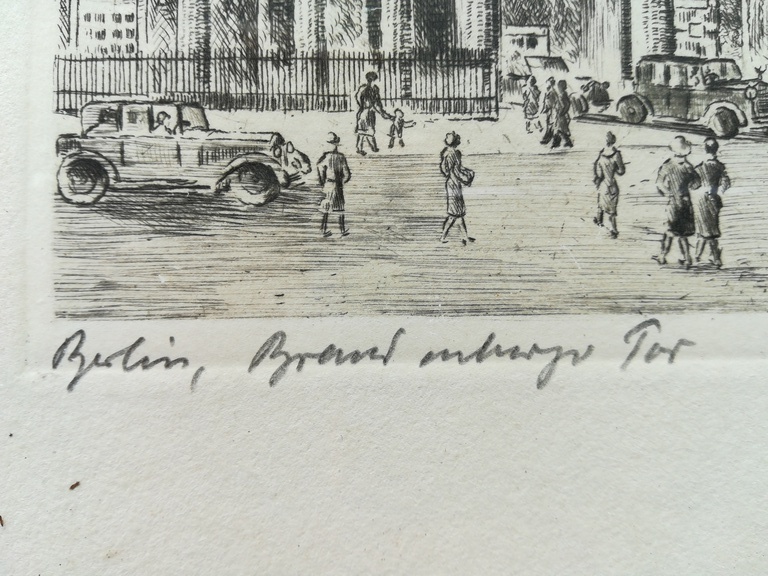 Berlin, Brandenburger Tor